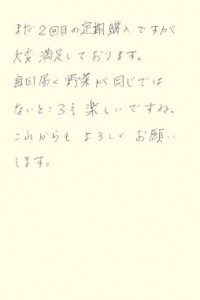 まだ2回目の定期購入ですが
大変満足しております。
毎回届く野菜が同じでは
ないところも楽しいですね。
これからも よろしく お願い
します。